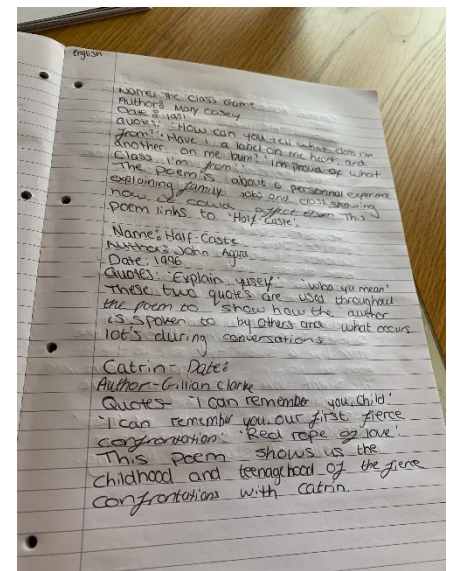 English
Name: The class Game
Author: Mary casey
Date: 1981
quotes: 'How can you tell what class I'm
from?'. 'Have I a label on me head, and
another on me bum?' 'Im proud of what
class I'm from'.
The poem is about a personal experience
explaining family, jobs and class showing
how it could affect This
poem links to 'Half-Caste'.
Name: Half-Caste
Author: John Agard
Date: 1996
Quotes: 'Explain yuself' 'who yu mean'
These two quotes are used throughout
the poem to show how the author
is spoken to by others and what occurs
lot's during conversations
Catrin - Date:
Author - Gillian Clarke
Quotes - 'I can remember you, child.'
'I can remember you, our first fierce
confrontation.' 'Red rope of love'.
This poem shows us the
childhood and teenagehood of the fierce
confrontations with catrin.